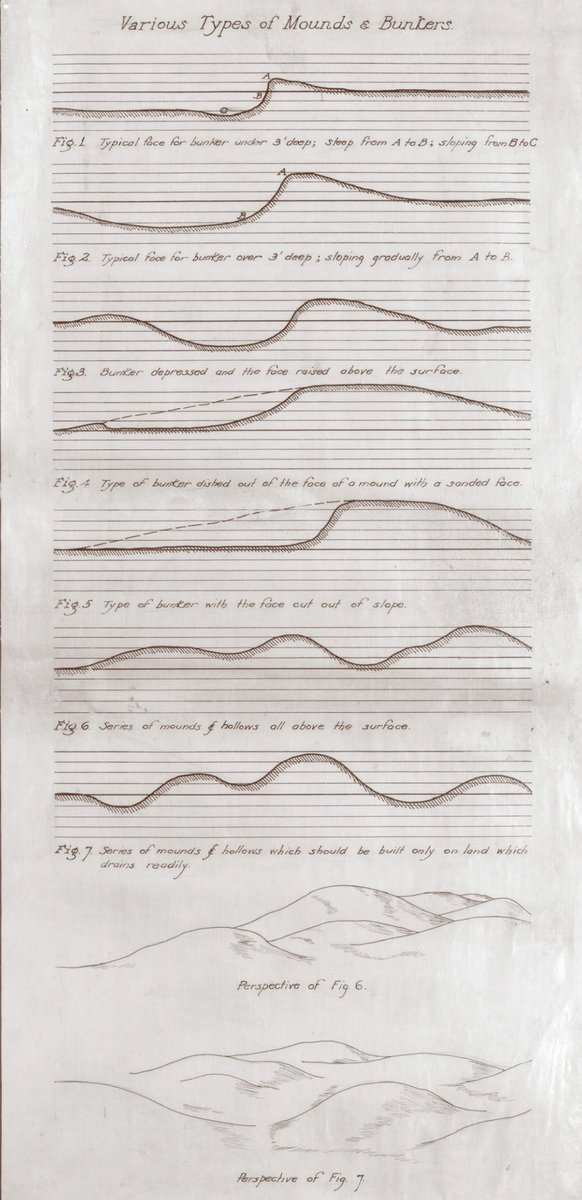 Various Types of Mounds & Bunkers.
A
B
C
Fig. 1 Typical face for bunker under 3' deep; steep from A to B; sloping from B to C
A
B
Fig. 2. Typical face for bunker over 3' deep; sloping gradually from A to B.
Fig. 3. Bunker depressed and the face raised above the surface.
Fig. 4 Type of bunker dished out of the face of a mound with a sanded face.
Fig. 5 Type of bunker with the face cut out of slope.
Fig. 6. Series of mounds & hollows all above the surface.
Fig. 7. Series of mounds & hollows which should be built only on land which
drains readily.
Perspective of Fig. 6.
Perspective of Fig. 7.